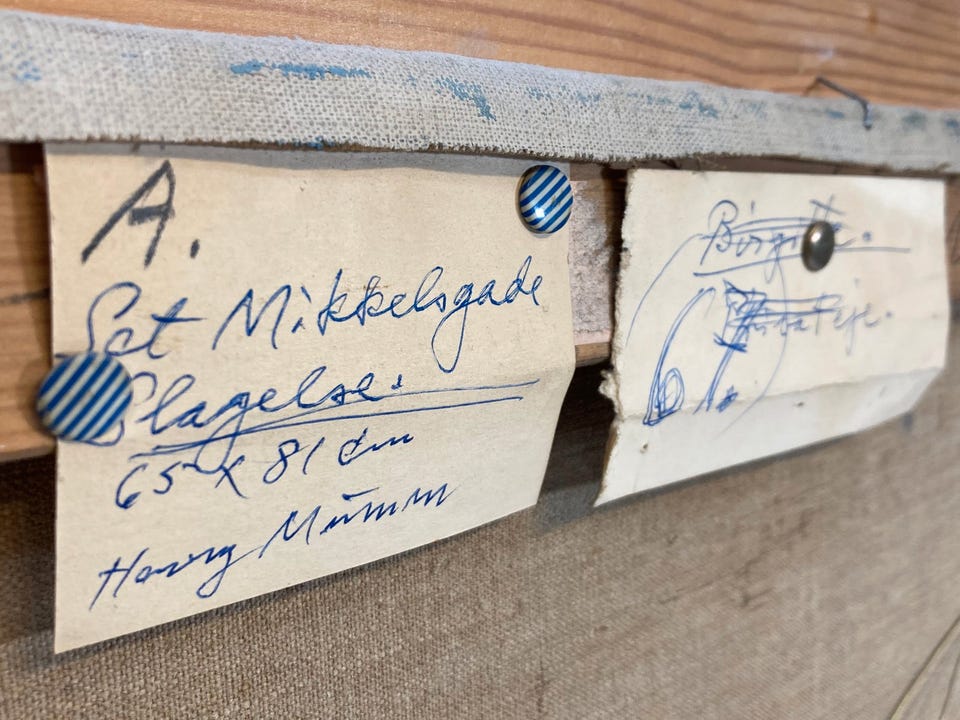 A.
Sct Mikkelsgade
Slagelse.
65 x 81 cm
Harry Mümm
Birgitte.